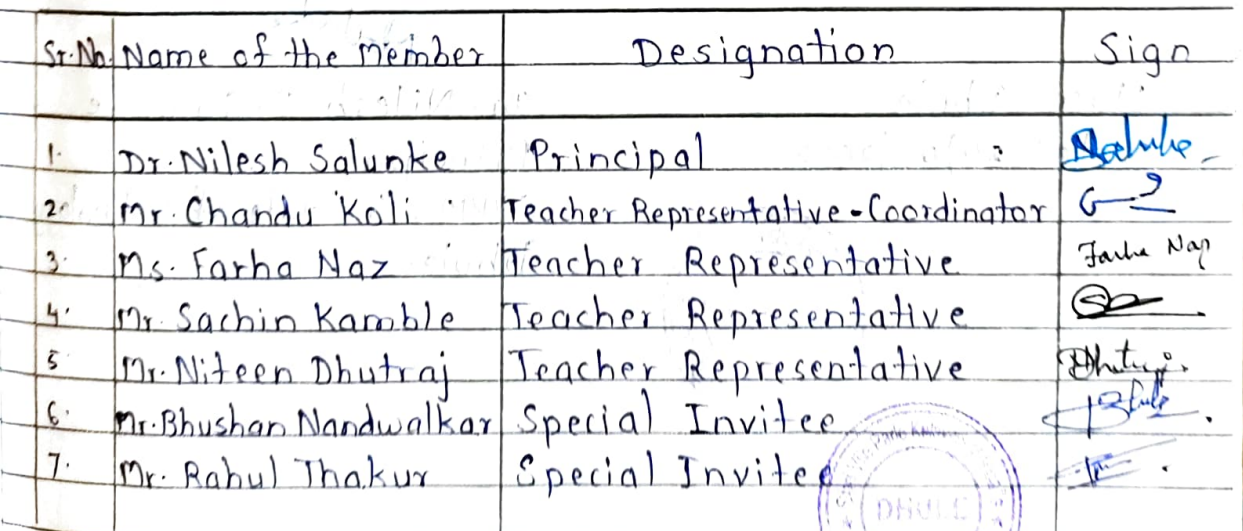 Sr.No. Name of the Member Designation Sign
1. Dr. Nilesh Salunke Principal :
2. Mr. Chandu Koli Teacher Representative - Coordinator
3. Ms. Farha Naz Teacher Representative Farha Naz
4. Mr. Sachin Kamble Teacher Representative
5 Mr. Niteen Dhutraj Teacher Representative
6. Mr. Bhushan Nandwalkar Special Invitee
7. Mr. Rahul Thakur Special Invitee
DHULE